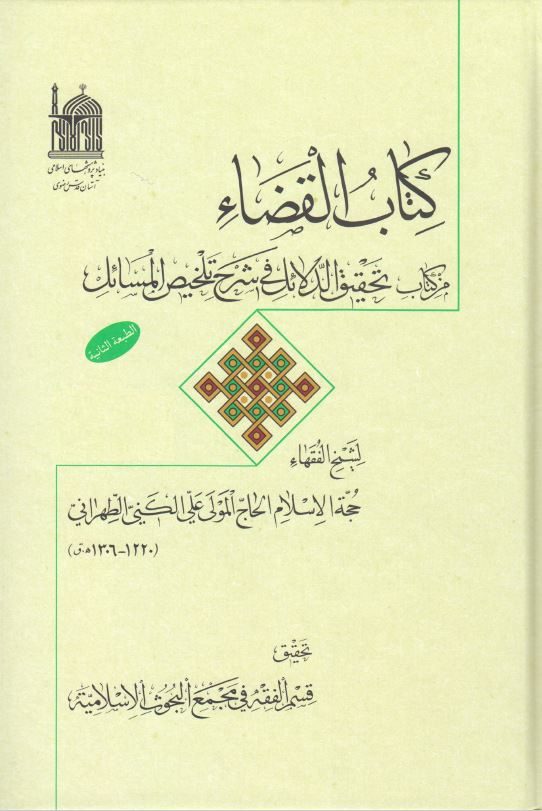 بنیاد پژوهشهای اسلامی
آستان قدس رضوی
كِتَابُ الْقَضَاءِ
مِنْ كِتَابِ تَحْقِيقِ الدَّلَائِلِ فِي شَرْحِ تَلْخِيصِ الْمَسَائِلِ
الطبعة الثانية
لِشَيْخِ الْفُقَهَاءِ
حُجَّةِ الْإِسْلَامِ الْحَاجِّ الْمَوْلَى عَلِيّ الْكَنِيِّ الطِّهْرَانِيِّ
(۱۲۲۰-۱۳۰۶ ه‍.ق)
تحقيق
قِسْمِ الْفِقْهِ فِي مَجْمَعِ الْبُحُوثِ الْإِسْلَامِيَّةِ